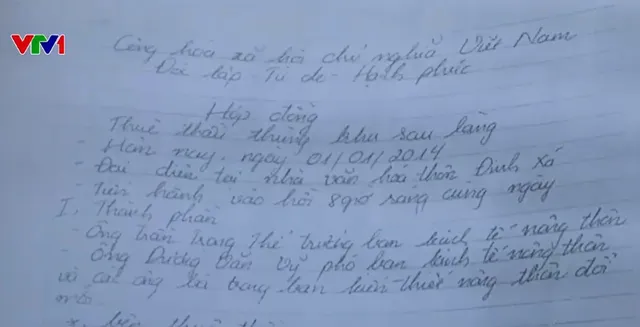 VTV1
Cộng hòa xã hội chủ nghĩa Việt Nam
Độc lập - Tự do - Hạnh phúc
Hợp đồng
Thuê thầu thùng khu sau làng
- Hôm nay, ngày 01/01/2014
- Đại diện tại nhà văn hóa thôn Đình Xá
- Tiến hành vào hồi 8 giờ sáng cùng ngày
I, Thành phần
- Ông Trần Trọng Thế trưởng ban kinh tế nông thôn
- Ông Dương Văn Vỹ phó ban kinh tế nông thôn
và các ông bà trong ban kiến thiết nông thôn đổi
mới